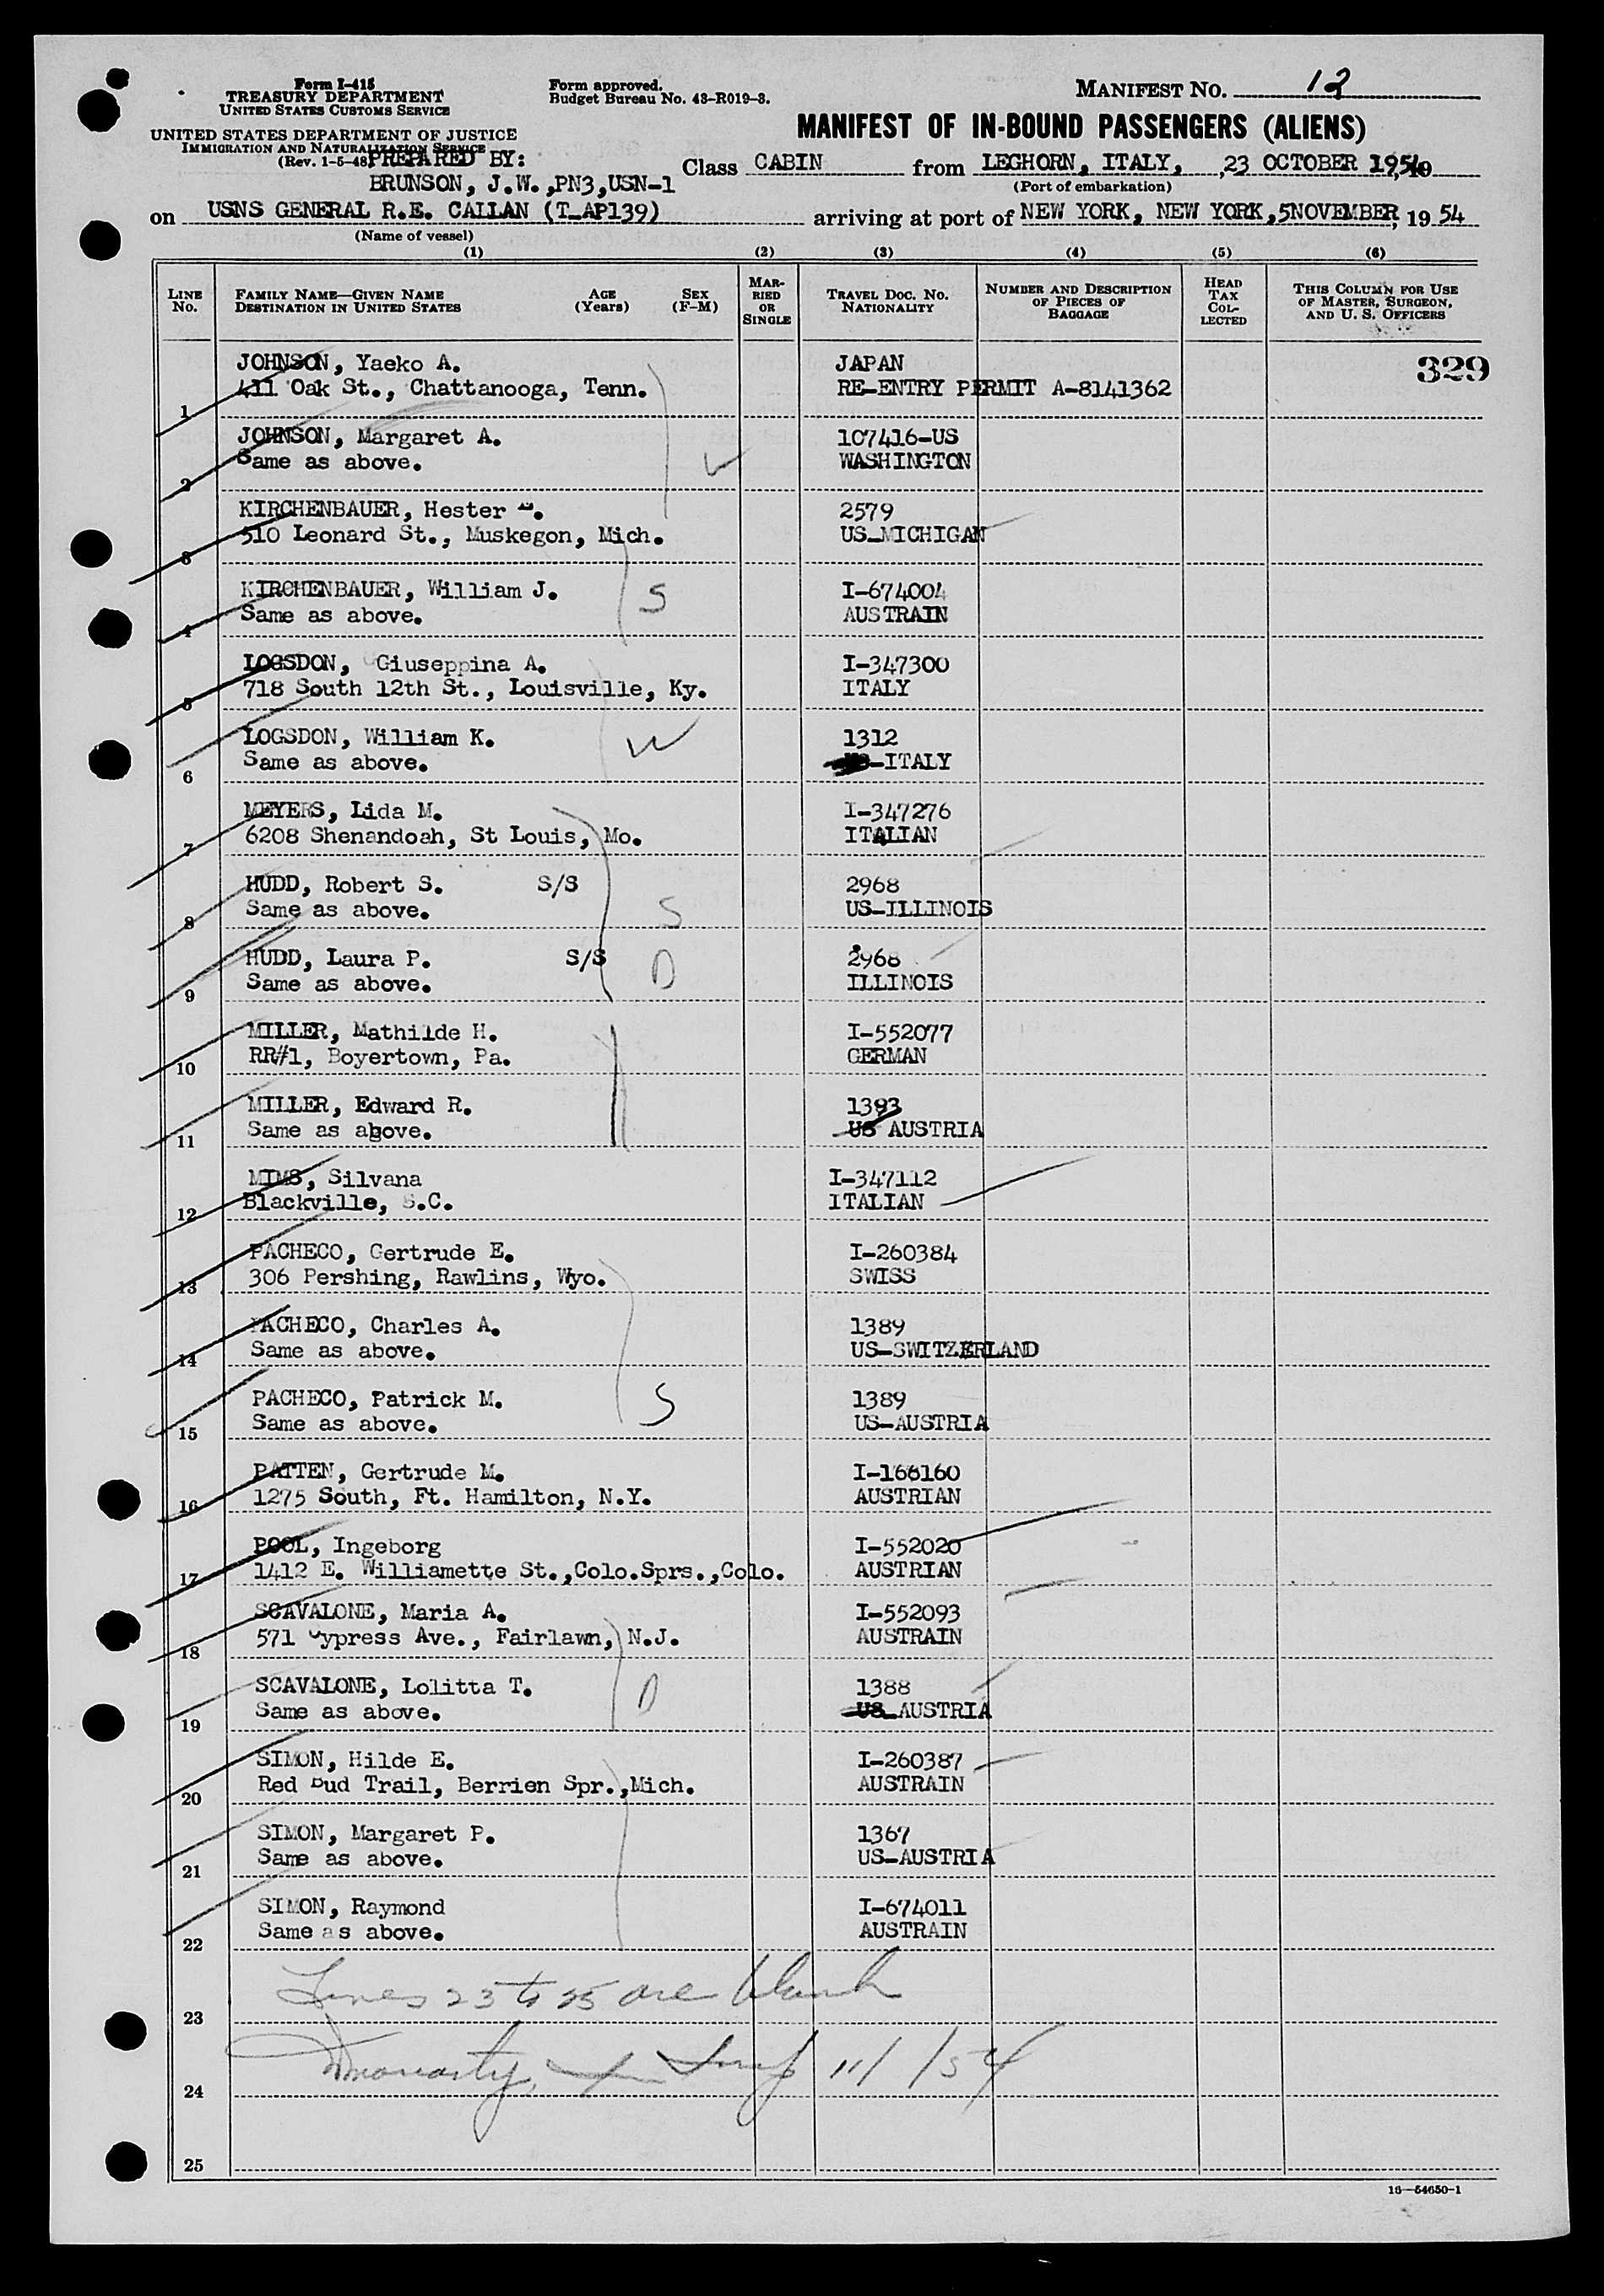 Form I-415
TREASURY DEPARTMENT
UNITED STATES CUSTOMS SERVICE
UNITED STATES DEPARTMENT OF JUSTICE
IMMIGRATION AND NATURALIZATION SERVICE
(Rev. 1-5-48)
PREPARED BY:
BRUNSON, J.W.,PN3,USN-1
Form approved.
Budget Bureau No. 43-R019-3.
MANIFEST NO. 12
MANIFEST OF IN-BOUND PASSENGERS (ALIENS)
Class CABIN from LEGHORN, ITALY, ,23 OCTOBER 1954
(Port of embarkation)
on USNS GENERAL R.E. CALLAN (T-AP139) arriving at port of NEW YORK, NEW YORK,5NOVEMBER, 1954
(Name of vessel)
(1) (2) (3) (4) (5) (6)
LINE NO.
FAMILY NAME—GIVEN NAME
DESTINATION IN UNITED STATES
AGE (Years)
SEX (F-M)
MARRIED OR SINGLE
TRAVEL DOC. NO.
NATIONALITY
NUMBER AND DESCRIPTION OF PIECES OF BAGGAGE
HEAD TAX COLLECTED
THIS COLUMN FOR USE OF MASTER, SURGEON, AND U. S. OFFICERS
329
JOHNSON, Yaeko A. JAPAN
1 411 Oak St., Chattanooga, Tenn. RE-ENTRY PERMIT A-8141362
JOHNSON, Margaret A. 107416-US
2 Same as above. WASHINGTON
KIRCHENBAUER, Hester 2579
3 510 Leonard St., Muskegon, Mich. US-MICHIGAN
KIRCHENBAUER, William J. S I-674004
4 Same as above. AUSTRAIN
LOGSDON, Giuseppina A. I-347300
5 718 South 12th St., Louisville, Ky. ITALY
LOGSDON, William K. 1312
6 Same as above. -ITALY
MEYERS, Lida M. I-347276
7 6208 Shenandoah, St Louis, Mo. ITALIAN
HUDD, Robert S. S/S 2968
8 Same as above. S US-ILLINOIS
HUDD, Laura P. S/S D 2968
9 Same as above. ILLINOIS
MILLER, Mathilde H. I-552077
10 RR#1, Boyertown, Pa. GERMAN
MILLER, Edward R. 1393
11 Same as above. US AUSTRIA
MIMS, Silvana I-347112
12 Blackville, S.C. ITALIAN
PACHECO, Gertrude E. I-260384
13 306 Pershing, Rawlins, Wyo. SWISS
PACHECO, Charles A. 1389
14 Same as above. US-SWITZERLAND
PACHECO, Patrick M. S 1389
15 Same as above. US-AUSTRIA
PATTEN, Gertrude M. I-166160
16 1275 South, Ft. Hamilton, N.Y. AUSTRIAN
POOL, Ingeborg I-552020
17 1412 E. Williamette St.,Colo.Sprs.,Colo. AUSTRIAN
SCAVALONE, Maria A. I-552093
18 571 Cypress Ave., Fairlawn, N.J. AUSTRAIN
SCAVALONE, Lolitta T. D 1388
19 Same as above. US-AUSTRIA
SIMON, Hilde E. I-260387
20 Red Bud Trail, Berrien Spr.,Mich. AUSTRAIN
SIMON, Margaret P. 1367
21 Same as above. US-AUSTRIA
SIMON, Raymond I-674011
22 Same as above. AUSTRAIN
23 Lines 23 to 25 are blank
24 11/ /54
25
16—54650-1